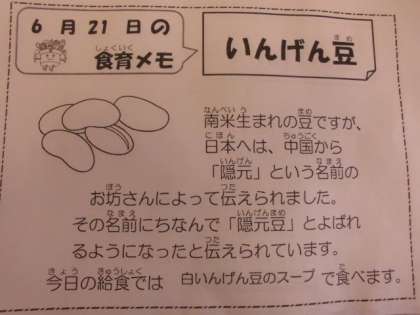 6月21日の
食育メモ
いんげん豆
南米生まれの豆ですが、
日本へは、中国から
「隠元」という名前の
お坊さんによって伝えられました。
その名前にちなんで「隠元豆」とよばれ
るようになったと伝えられています。
今日の給食では 白いんげん豆のスープ で食べます。